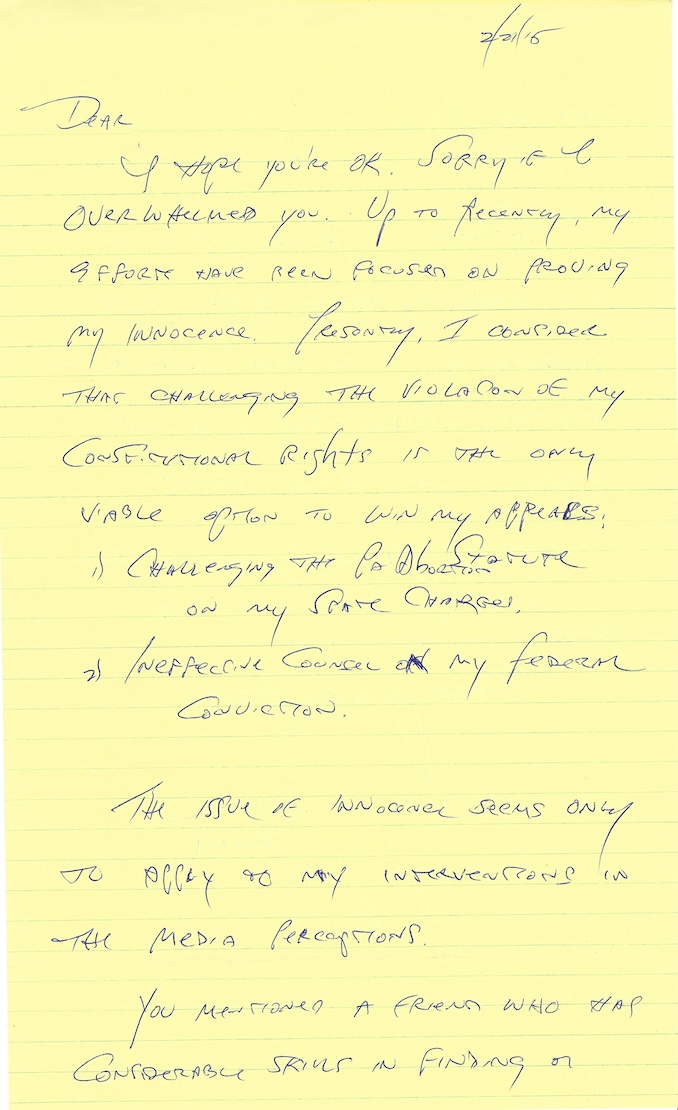 2/21/15
Dear
I Hope you're OK. Sorry if I
overwhelmed you. Up to recently, my
efforts have been focused on proving
my innocence. Presently, I consider
that challenging the violation of my
Constitutional Rights is the only
viable option to win my appeals:
1) Challenging the Pa Abortion Statute
on my State Charges.
2) Ineffective Counsel on my federal
Conviction.
The issue of innocence seems only
to apply to my interventions in
the media perceptions.
You mentioned a friend who has
considerable skills in finding or